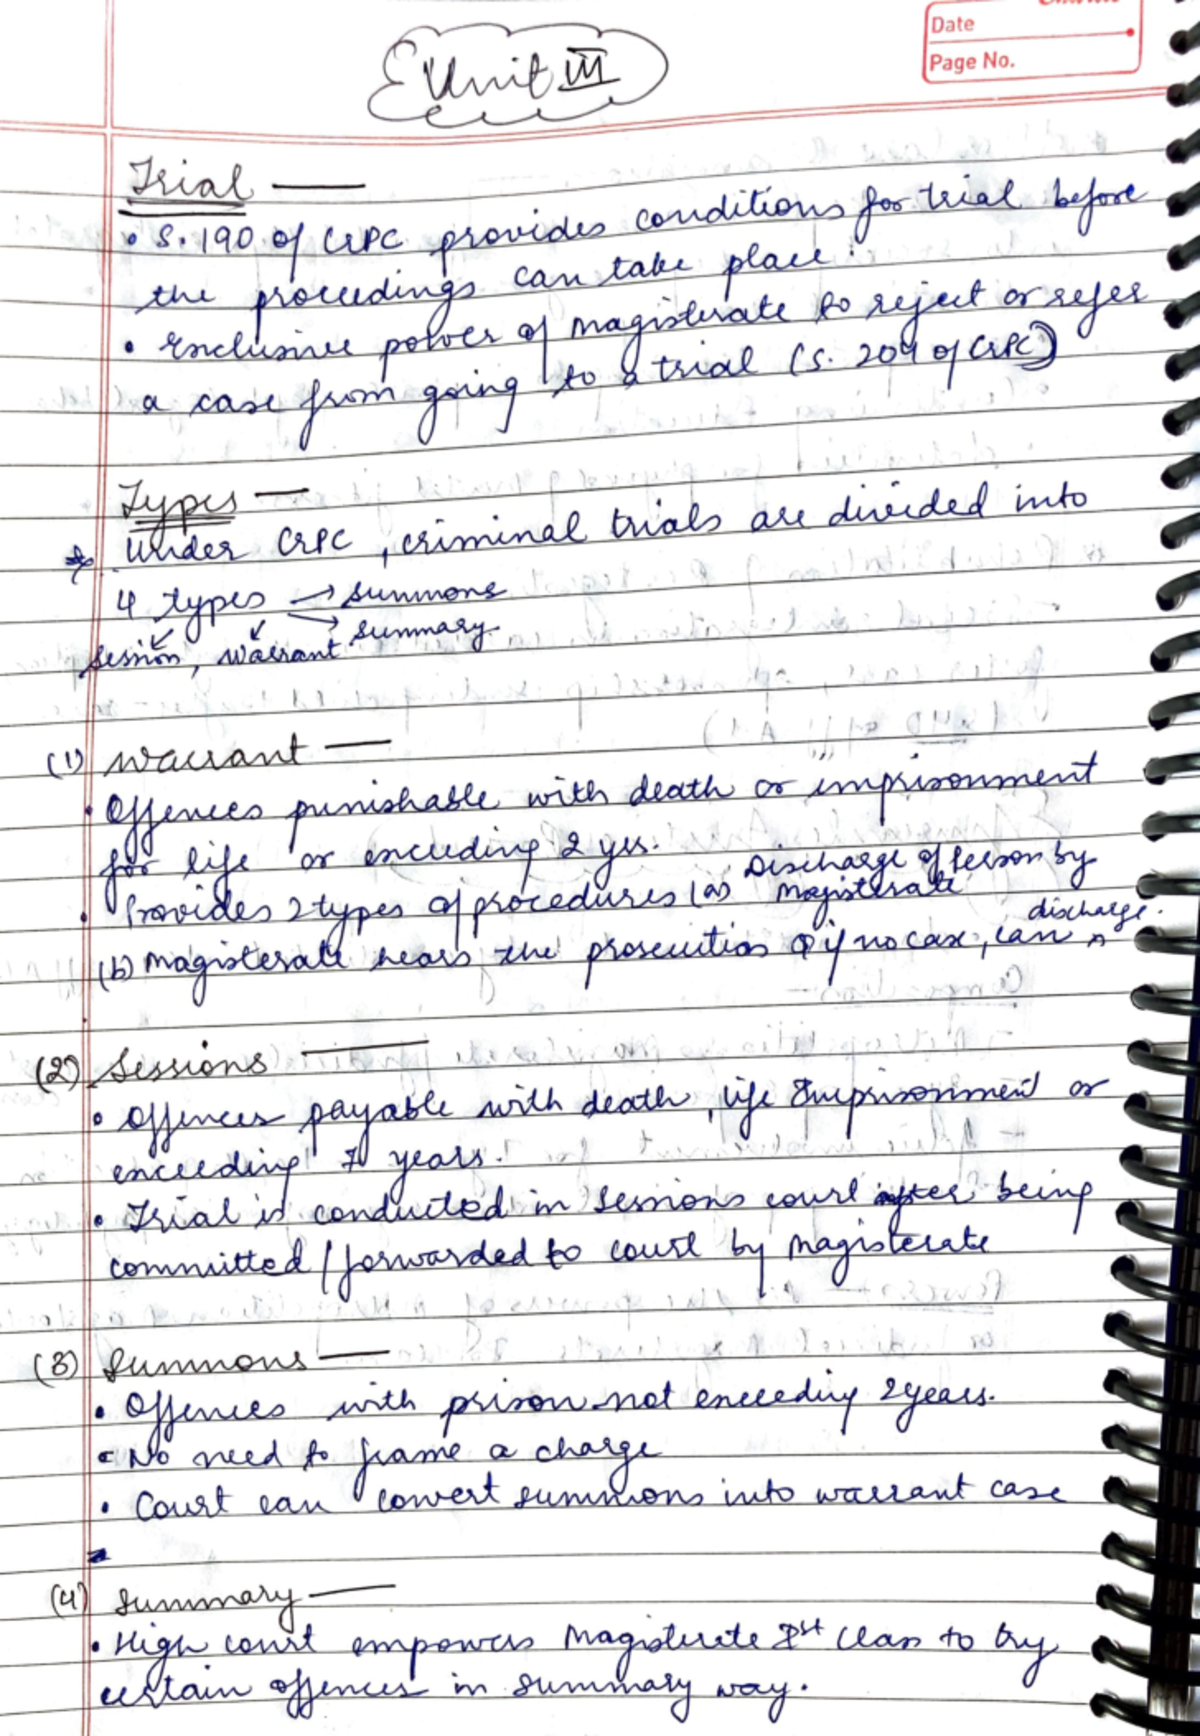 Date
Page No.
Unit III
Trial —
• S. 190 of CrPC provides conditions for trial before
the proceedings can take place.
• Exclusive power of magisterate to reject or refer
a case from going to a trial (S. 204 of CrPC)
Types —
* Under CrPC, criminal trials are divided into
4 types → summons
→ summary
session, warrant
(1) Warrant —
• Offences punishable with death or imprisonment
for life or exceeding 2 yrs.
• Provides 2 types of procedures (a) Discharge of Person by
magisterate
(b) Magisterate hears the prosecution & if no case, can ^ discharge.
(2) Sessions —
• Offences payable with death, life Imprisonment or
exceeding 7 years.
• Trial is conducted in sessions court after being
committed / forwarded to court by Magisterate
(3) Summons —
• Offences with prison not exceeding 2 years.
• No need to frame a charge
• Court can convert summons into warrant case
(4) Summary —
• High court empowers Magisterate Ist Class to try
certain offences in summary way.